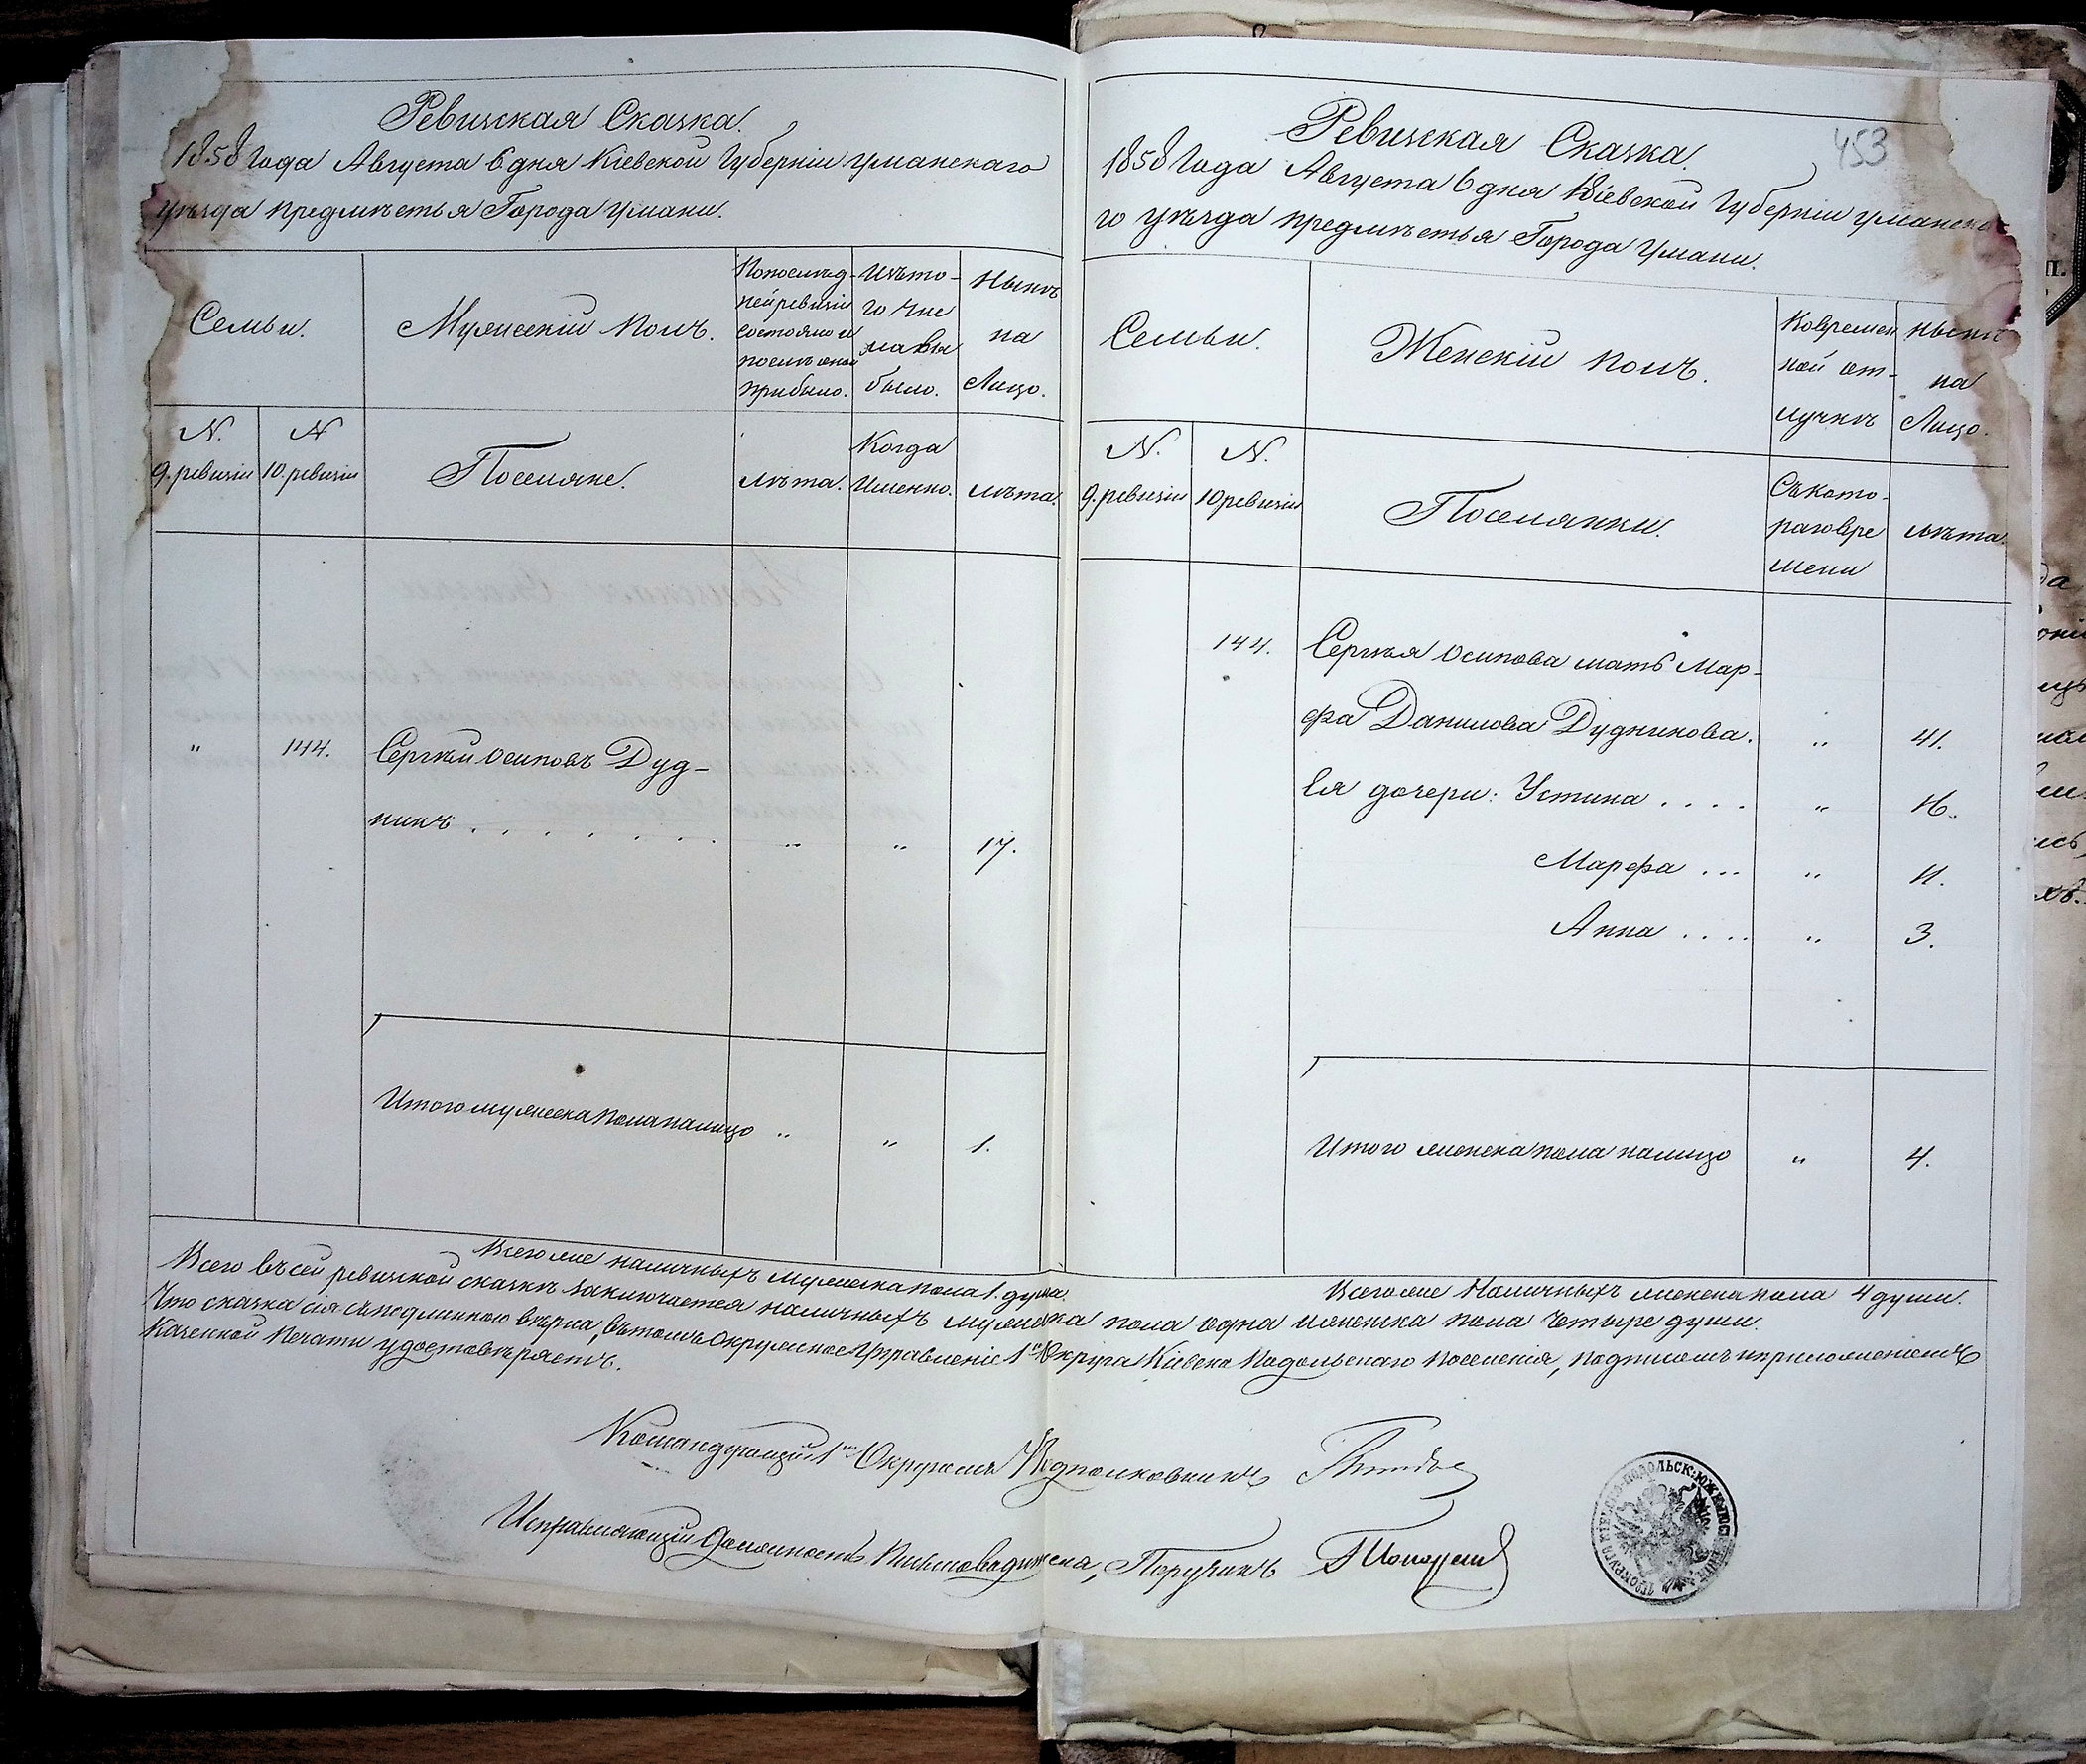 Ревизская Сказка.
1858 Года Августа 6 дня Кіевской Губерніи Уманскаго
уѣзда предмѣстья Города Умани.
Семьи.
Мужескій полъ.
По послѣд-
ней ревизіи
состояло и
послѣ оной
прибыло.
Изъ то-
го чис
ла вы
было.
Нынѣ
на
Лицо.
N.
9. ревизіи
N
10. ревизіи
Поселяне.
лѣта.
Когда
Именно.
лѣта.
" 144. Сергѣй Осиповъ Дуд-
никъ . . . . . . . " " 17.
Итого мужеска пола налицо " " 1.
Всего же наличныхъ мужеска пола 1. душа.
453
Ревизская Сказка.
1858 Года Августа 6 дня Кіевской Губерніи Уманска-
го уѣзда предмѣстья Города Умани.
Семьи.
Женскій полъ.
Во времен
ной от-
лучкѣ
Нынѣ
на
Лицо.
N.
9. ревизіи
N.
10 ревизіи
Поселянки.
Съ кото-
раго вре
мени
лѣта.
144. Сергѣя Осипова мать Мар-
фа Данилова Дудникова. " 41.
Ея дочери: Устина . . . . " 16.
Марфа . . . " 11.
Анна . . . . " 3.
Итого женска пола налицо " 4.
Всего же Наличныхъ женска пола 4 души.
Всего въ сей ревизской сказкѣ заключается наличныхъ мужеска пола одна и женска пола четыре души.
Что сказка сія съ подлинною вѣрна, въ томъ Окружное Управленіе 1го Округа Кіевско Подольскаго Поселенія, подписомъ и приложеніемъ
Казенной Печати удостовѣряетъ.
Командующій 1мъ Округомъ Подполковникъ
Исправляющій Должность Письмоводителя, Поручикъ